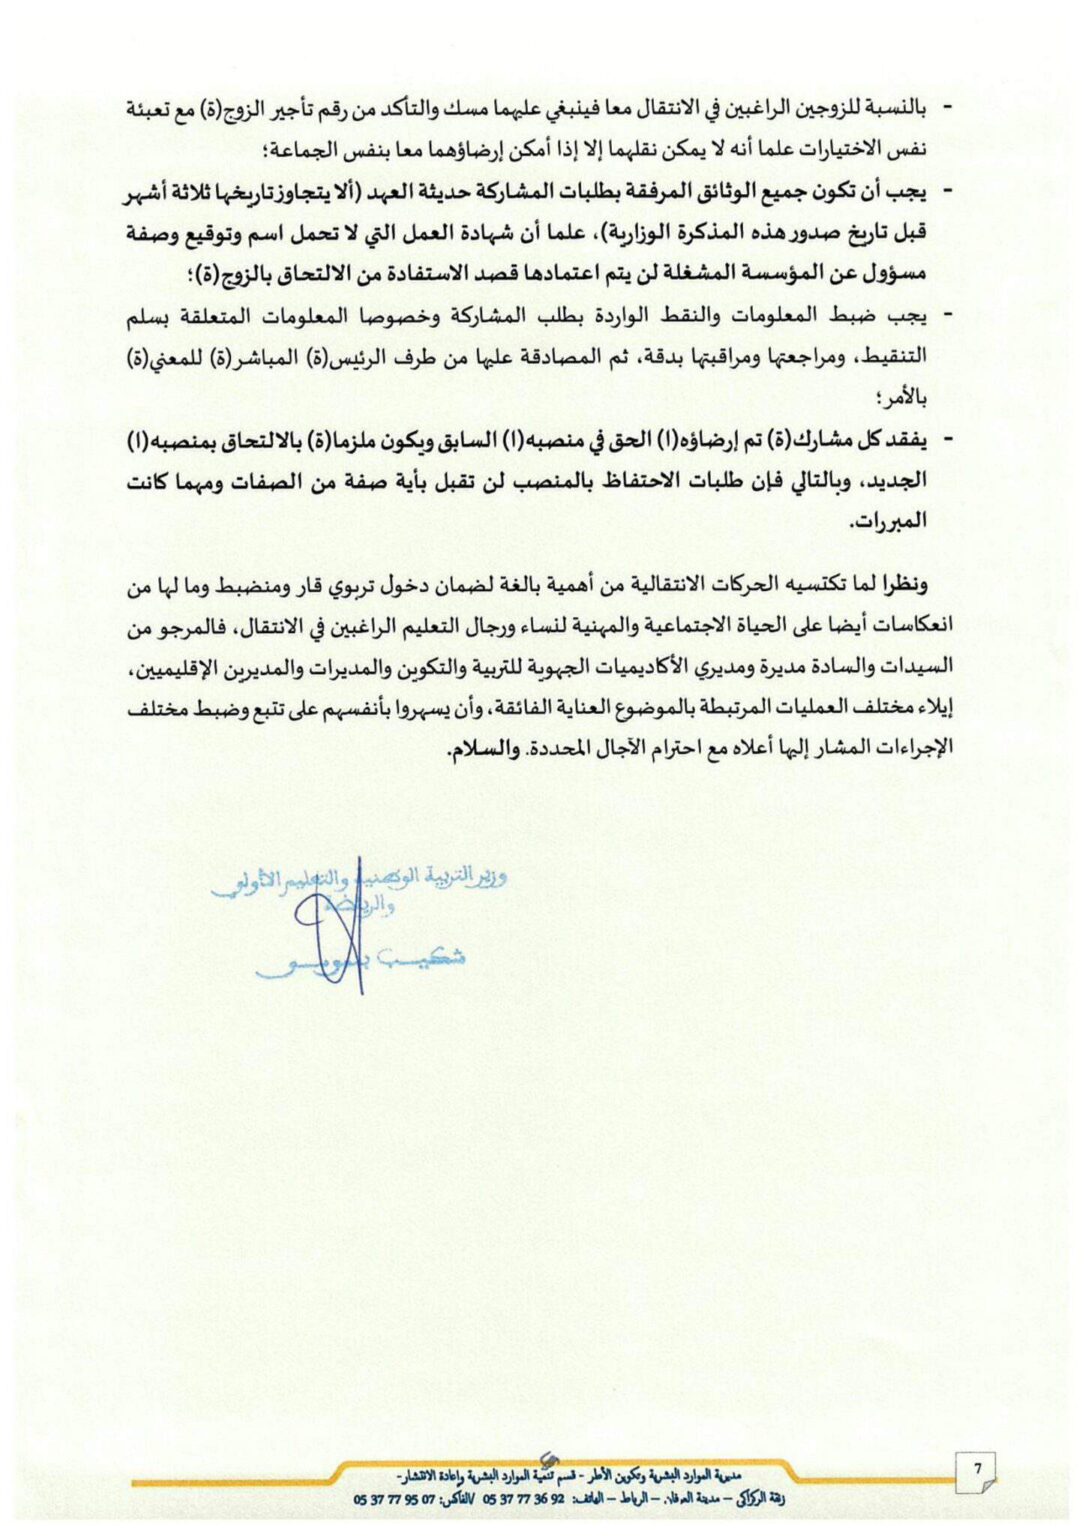 - بالنسبة للزوجين الراغبين في الانتقال معا فينبغي عليهما مسك والتأكد من رقم تأجير الزوج(ة) مع تعبئة
نفس الاختيارات علما أنه لا يمكن نقلهما إلا إذا أمكن إرضاؤهما معا بنفس الجماعة؛
- يجب أن تكون جميع الوثائق المرفقة بطلبات المشاركة حديثة العهد (ألا يتجاوز تاريخها ثلاثة أشهر
قبل تاريخ صدور هذه المذكرة الوزارية)، علما أن شهادة العمل التي لا تحمل اسم وتوقيع وصفة
مسؤول عن المؤسسة المشغلة لن يتم اعتمادها قصد الاستفادة من الالتحاق بالزوج(ة)؛
- يجب ضبط المعلومات والنقط الواردة بطلب المشاركة وخصوصا المعلومات المتعلقة بسلم
التنقيط، ومراجعتها ومراقبتها بدقة، ثم المصادقة عليها من طرف الرئيس(ة) المباشر(ة) للمعني(ة)
بالأمر؛
- يفقد كل مشارك(ة) تم إرضاؤه(ا) الحق في منصبه(ا) السابق ويكون ملزما(ة) بالالتحاق بمنصبه(ا)
الجديد، وبالتالي فإن طلبات الاحتفاظ بالمنصب لن تقبل بأية صفة من الصفات ومهما كانت
المبررات.
ونظرا لما تكتسيه الحركات الانتقالية من أهمية بالغة لضمان دخول تربوي قار ومنضبط وما لها من
انعكاسات أيضا على الحياة الاجتماعية والمهنية لنساء ورجال التعليم الراغبين في الانتقال، فالمرجو من
السيدات والسادة مديرة ومديري الأكاديميات الجهوية للتربية والتكوين والمديرات والمديرين الإقليميين،
إيلاء مختلف العمليات المرتبطة بالموضوع العناية الفائقة، وأن يسهروا بأنفسهم على تتبع وضبط مختلف
الإجراءات المشار إليها أعلاه مع احترام الآجال المحددة. والسلام.
وزير التربية الوطنية والتعليم الأولي
والرياضة
شكيب بنموسى
مديرية الموارد البشرية وتكوين الأطر - قسم تنمية الموارد البشرية وإعادة الانتشار-
زنقة الركراكي – مدينة العرفان – الرباط – الهاتف: 05 37 77 36 92 /الفاكس: 05 37 77 95 07
7